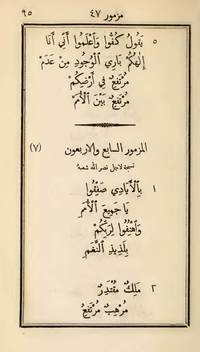 ٩٥ مزمور ٤٧
٥ يَقُولُ كُفُّوا وَاعْلَمُوا أَنِّي أَنَا
إِلٰهُكُمْ بَارِي الْوُجُودِ مِنْ عَدَمْ
مُرْتَفِعٌ فِي أَرْضِكُمْ
مُرْتَفِعٌ بَيْنَ الْأُمَمْ
المزمور السابع والاربعون (٧)
تسبحة لاجل نصر الله شعبه
١ بِالْأَيَادِي صَفِّقُوا
يَا جَمِيعَ الْأُمَمْ
وَاهْتِفُوا لِرَبِّكُمْ
بِلَذِيذِ النَّغَمْ
٢ مَلِكٌ مُقْتَدِرٌ
مُرْهِبٌ مُرْتَفِعُ